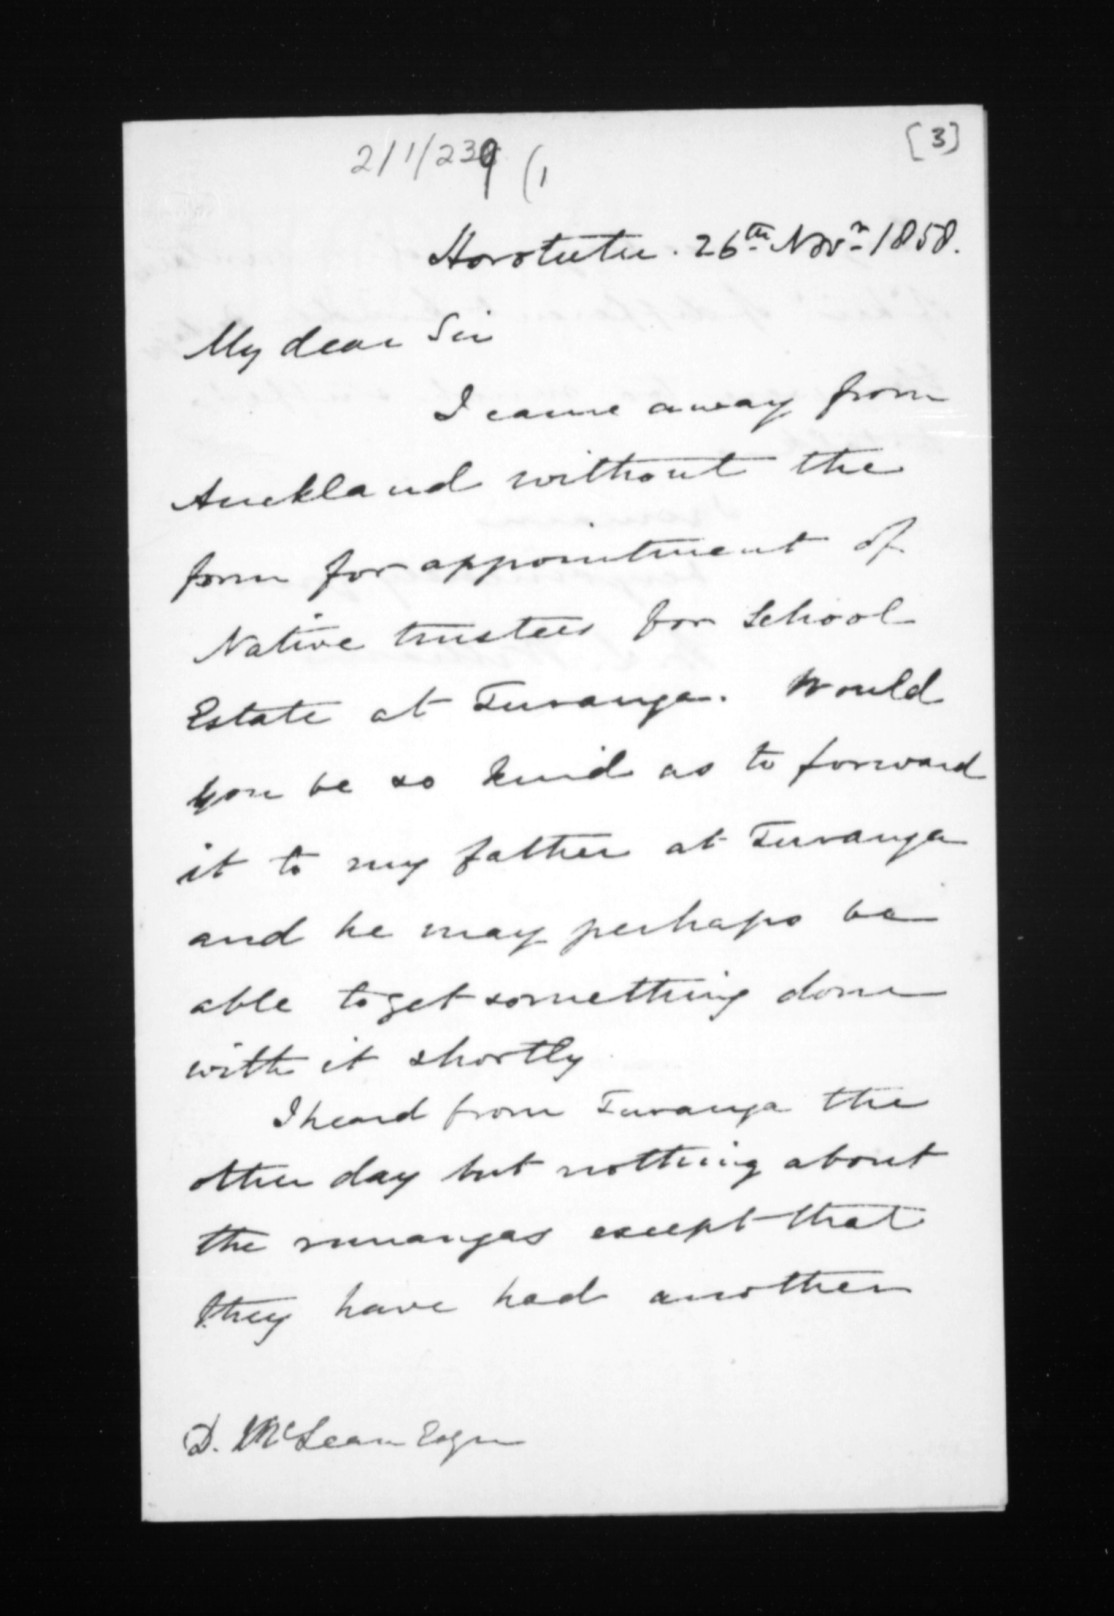 2/1/239 (1
[3]
Horotutu. 26th Novr 1858.
My dear Sir
I came away from
Auckland without the
form for appointment of
Native trustees for School
Estate at Turanga. Would
you be so kind as to forward
it to my father at Turanga
and he may perhaps be
able to get something done
with it shortly
I heard from Turanga the
other day but nothing about
the runangas except that
they have had another
D. McLean Esqre